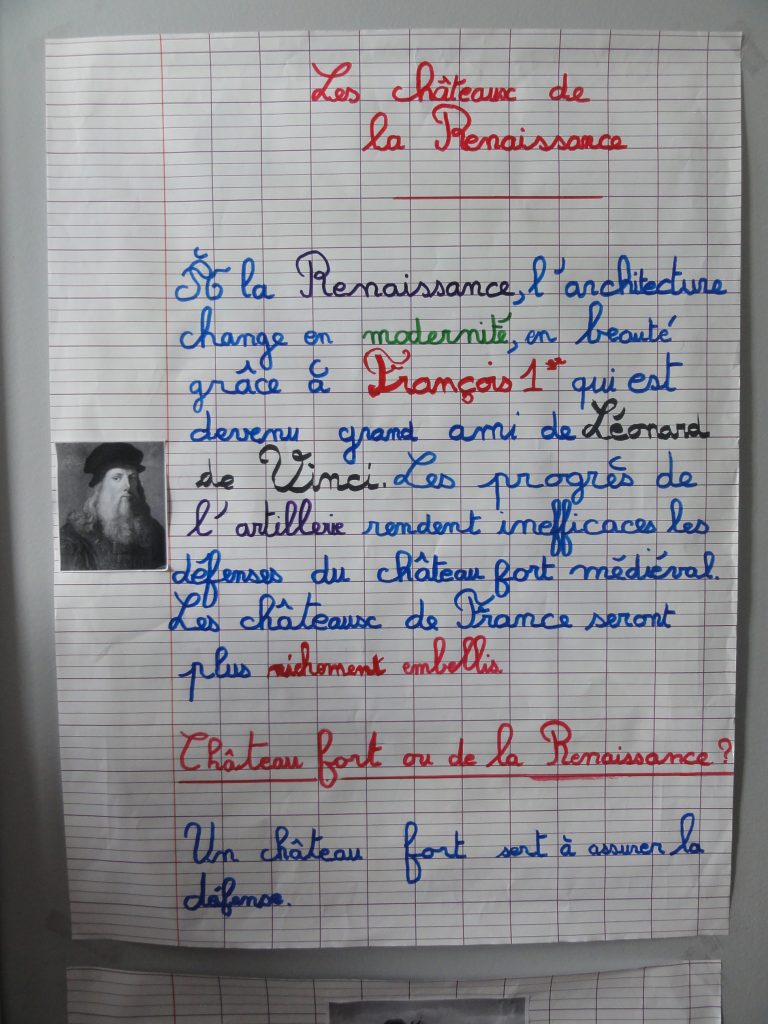 Les châteaux de
la Renaissance
À la Renaissance, l'architecture
change en modernité, en beauté
grâce à François 1er qui est
devenu grand ami de Léonard
de Vinci. Les progrès de
l'artillerie rendent inefficaces les
défenses du château fort médiéval.
Les châteaux de France seront
plus richement embellis
Château fort ou de la Renaissance ?
Un château fort sert à assurer la
défense.